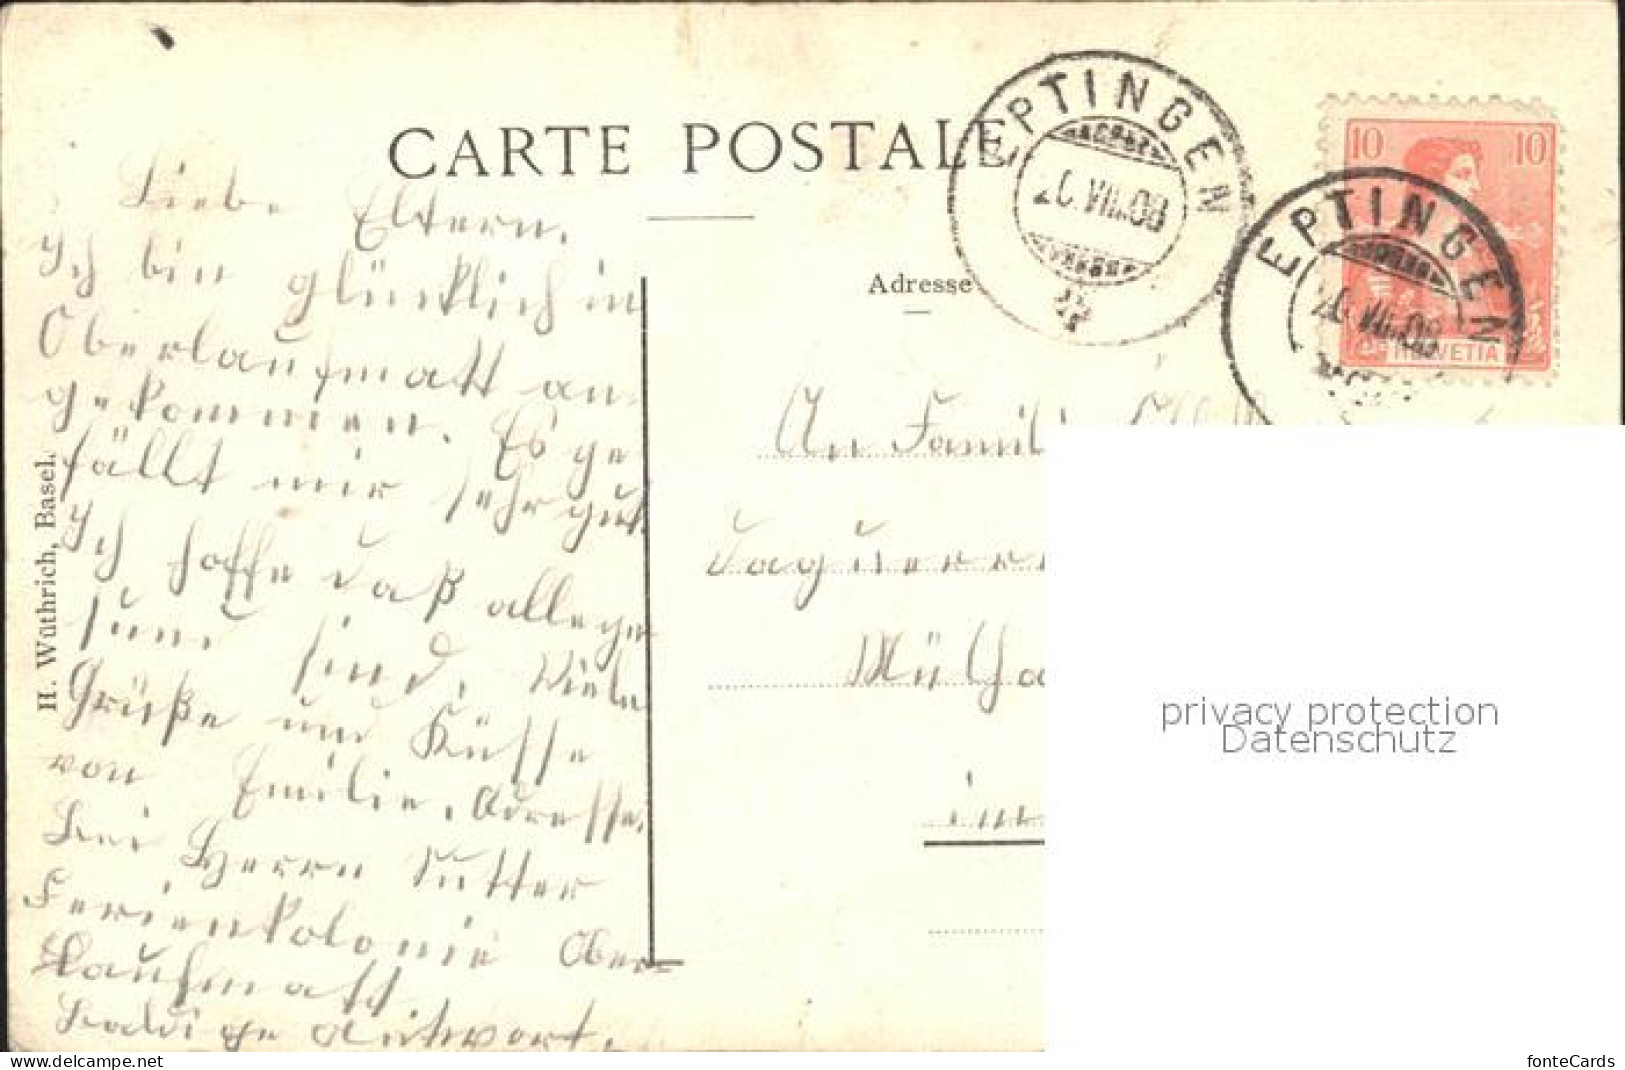 CARTE POSTALE
EPTINGEN
VII.08
10 10
EPTINGEN
VII.08
HELVETIA
Adresse
H. Wüthrich, Basel.
Liebe Eltern.
Ich bin glücklich in
Oberlaufmatt an-
gekommen. Es ge-
fällt mir sehr gut.
Ich hoffe daß alle ge-
sund sind. Viele
Grüße und Küsse
von Emilie. Adresse.
bei Herrn Sutter
Ferienkolonie Ober-
Laufmatt
Baldige Antwort.
An Famili
Daguerre
Mülha
im
privacy protection
Datenschutz
www.delcampe.net
fonteCards